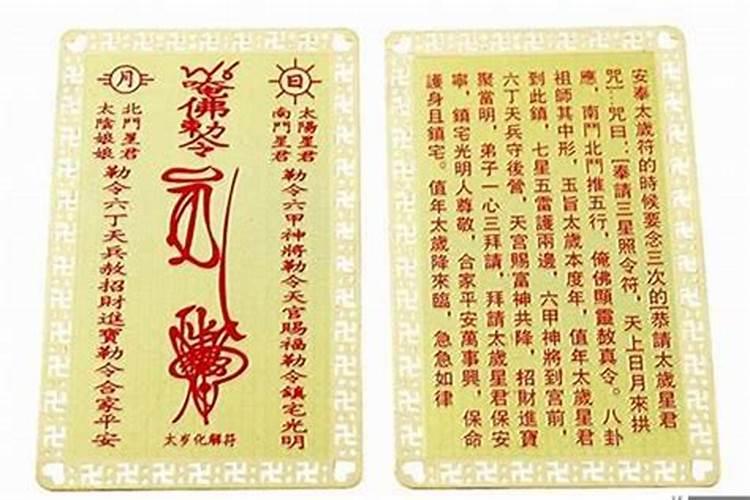 日
太陽星君
南鬥星君
勒令六甲神將勒令天官賜福勒令鎮宅光明
唵佛勅令
太岁化解符
月
北鬥星君
太陰娘娘
勒令六丁天兵赦招財進寶勒令合家平安
安奉太歲符的時候要念三次的[恭請太歲星君
咒]…咒曰:[奉請三星照令符,天上日月來拱
應,南鬥北鬥推五行,俺佛顯靈敖真令。八卦
祖師其中形,玉旨太歲本度年,值年太歲星君
到此鎮,七星五雷護兩邊,六甲神將到宫前,
六丁天兵守後營,天宫賜富神共降,招財進寶
聚當明,弟子一心三拜請,拜請太歲星君保安
寧,鎮宅光明人尊敬,合家平安萬事興,保命
護身且鎮宅。值年太歲降來臨,急急如律